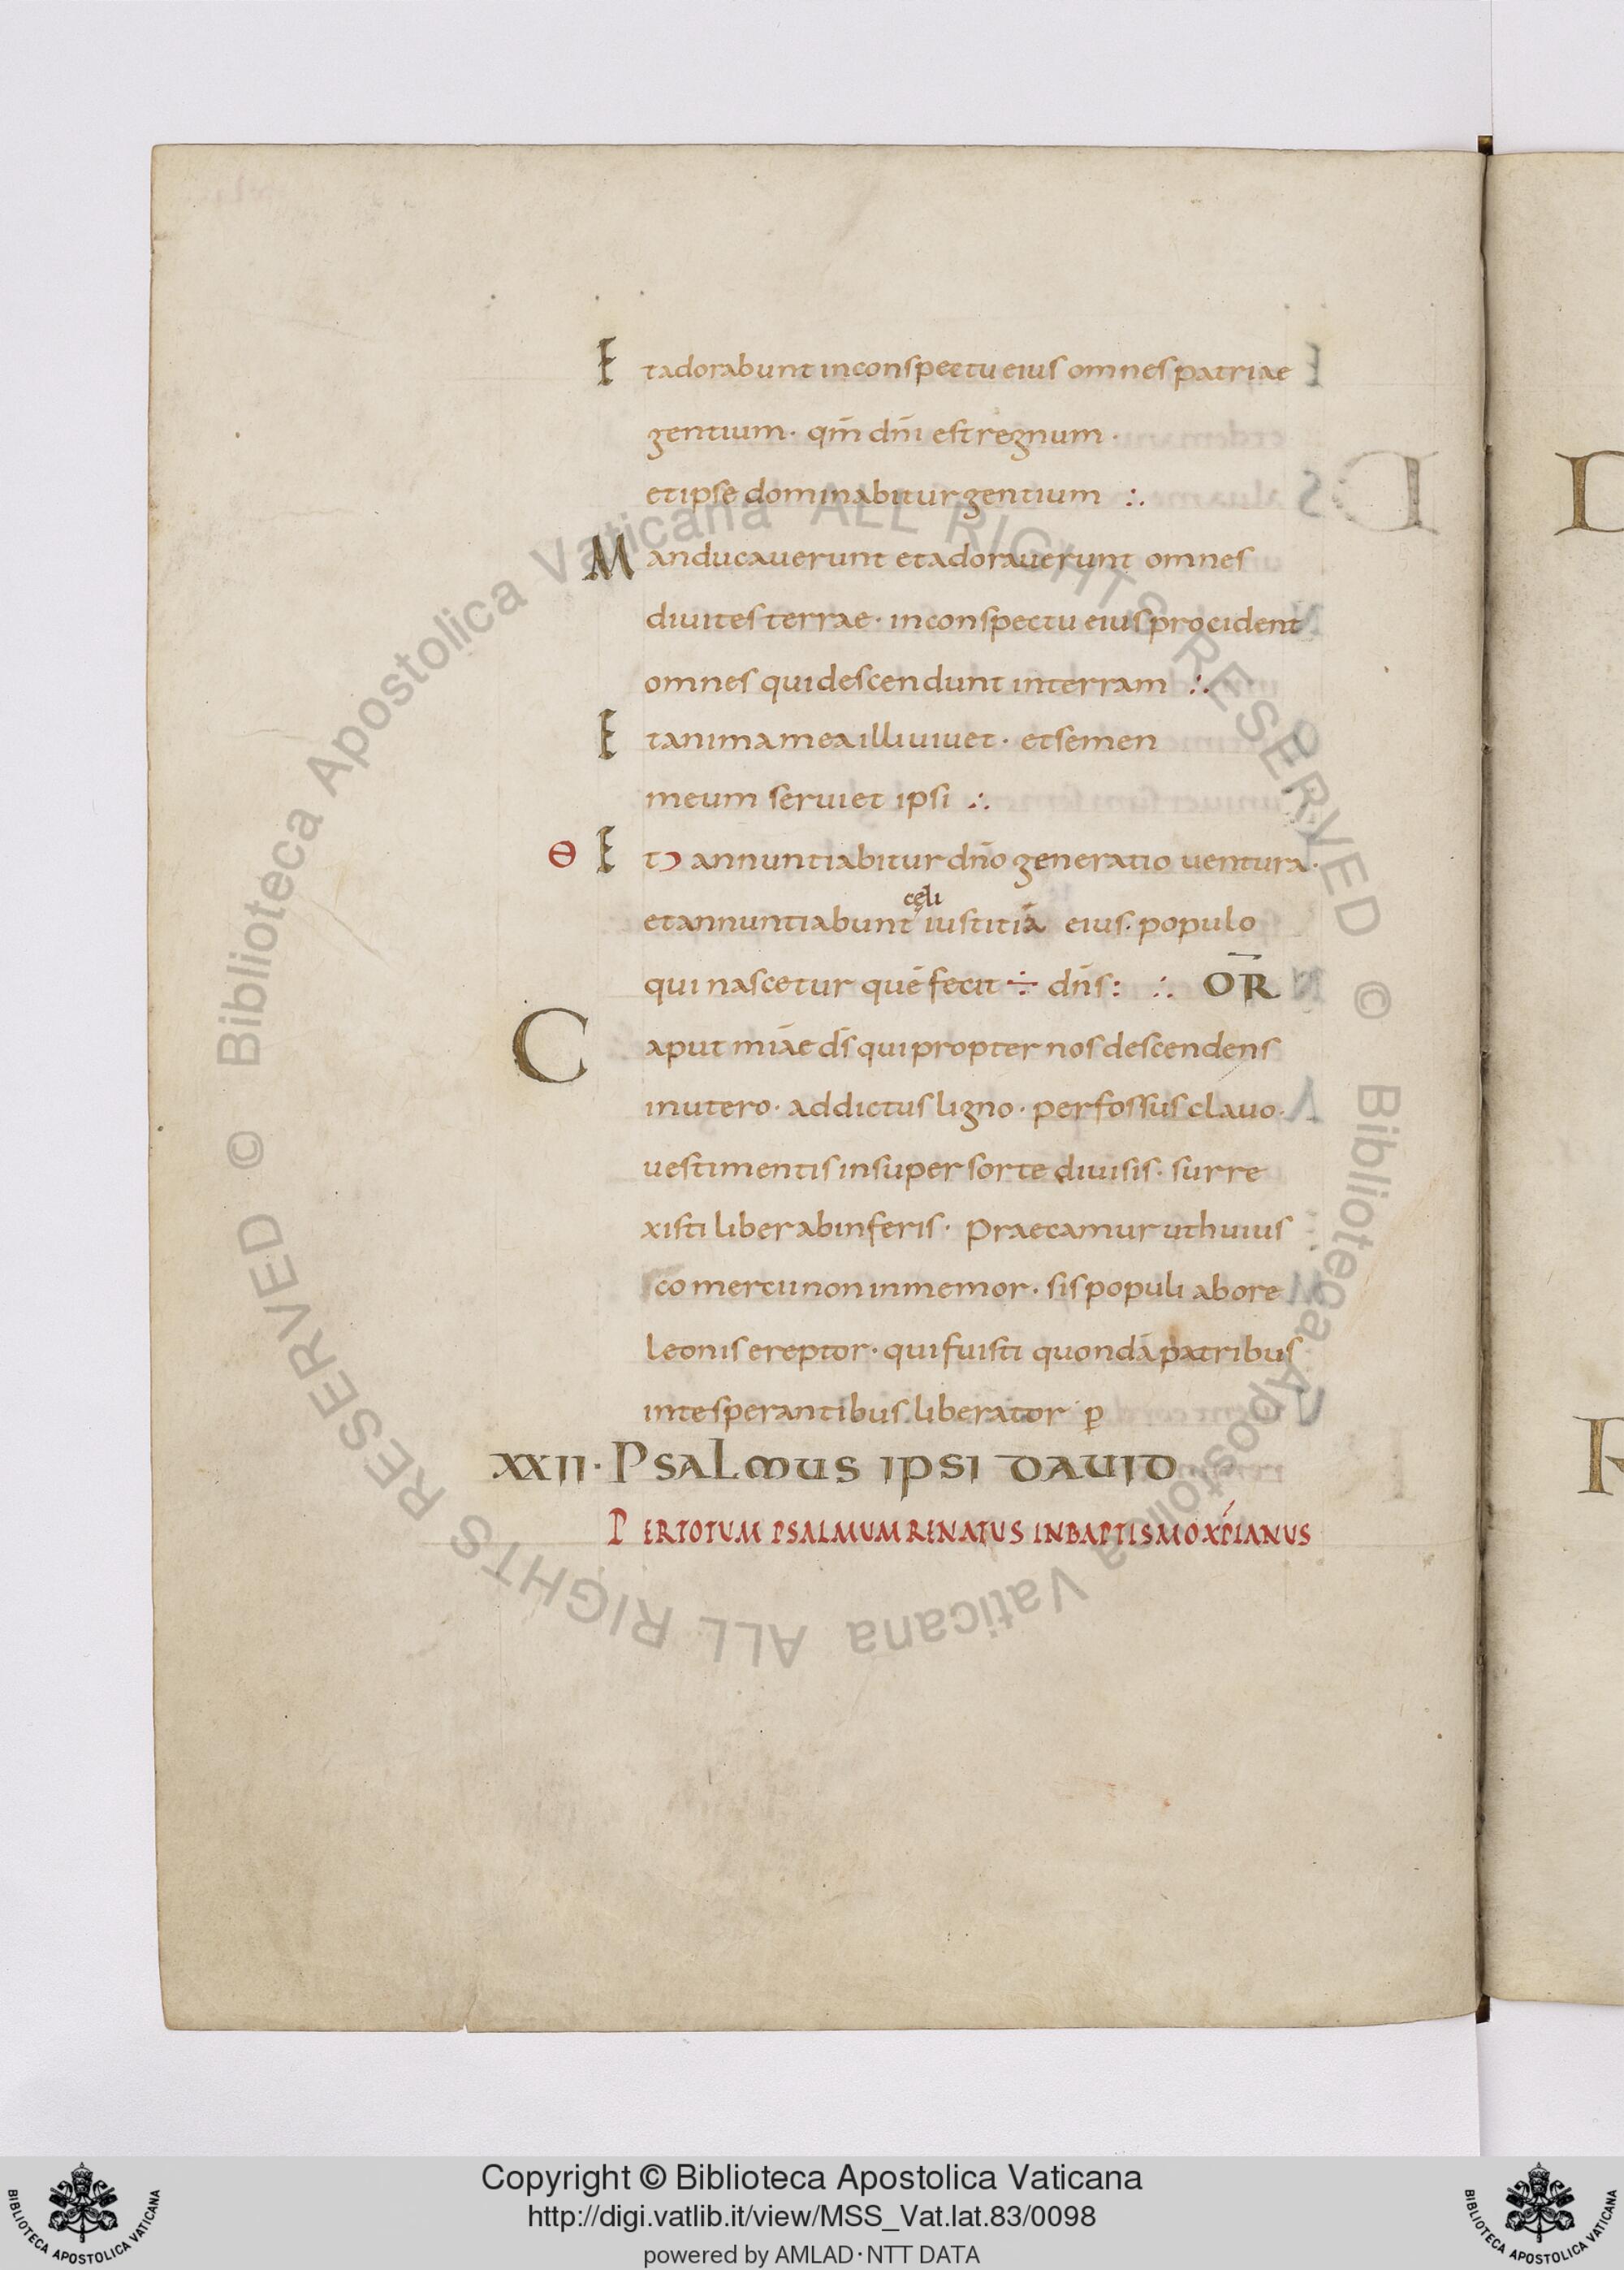 Et adorabunt in conspectu eius omnes patriae
gentium · qm̄ dn̄i est regnum ·
et ipse dominabitur gentium :.
Manducauerunt et adorauerunt omnes
diuites terrae · in conspectu eius procident
omnes qui descendunt in terram :.
Et anima mea illi uiuet · et semen
meum seruiet ipsi :.
Θ Et annuntiabitur dn̄o generatio uentura ·
cęli
et annuntiabunt iustitiā eius · populo
qui nascetur quē fecit ÷ dn̄s : ∴ OR̄
Caput miāe ds̄ qui propter nos descendens
in utero · addictus ligno · perfossus clauo ·
uestimentis insuper sorte diuisis · surre
xisti liber ab inferis · Praecamur ut huius
comercii non inmemor · sis populi ab ore
leonis ereptor · qui fuisti quondā patribus
in te sperantibus liberator p̱
XXII · PSALMUS IPSI DAUID
PER TOTUM PSALMUM RENATUS IN BAPTISMO XP̄IANUS
Copyright © Biblioteca Apostolica Vaticana
http://digi.vatlib.it/view/MSS_Vat.lat.83/0098
powered by AMLAD·NTT DATA